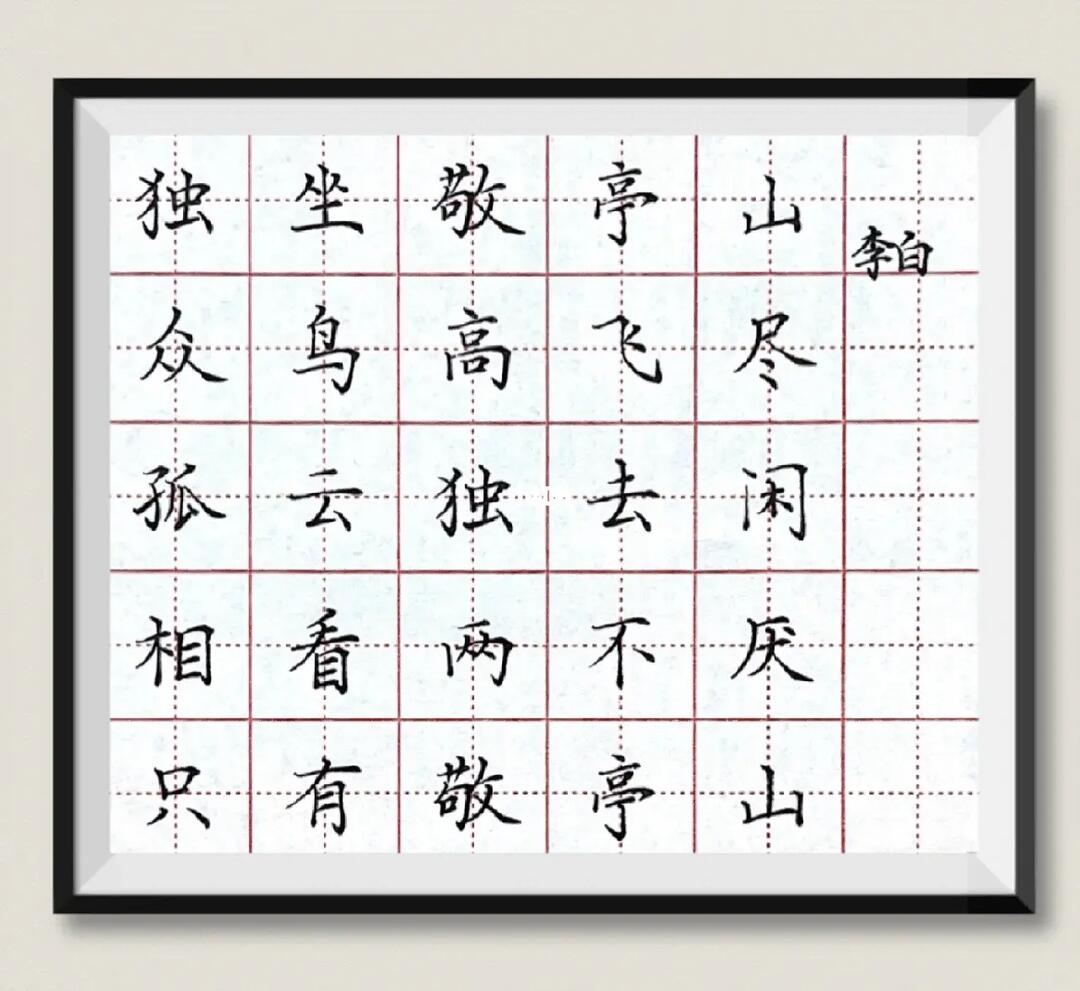 独坐敬亭山 李白
众鸟高飞尽
孤云独去闲
相看两不厌
只有敬亭山